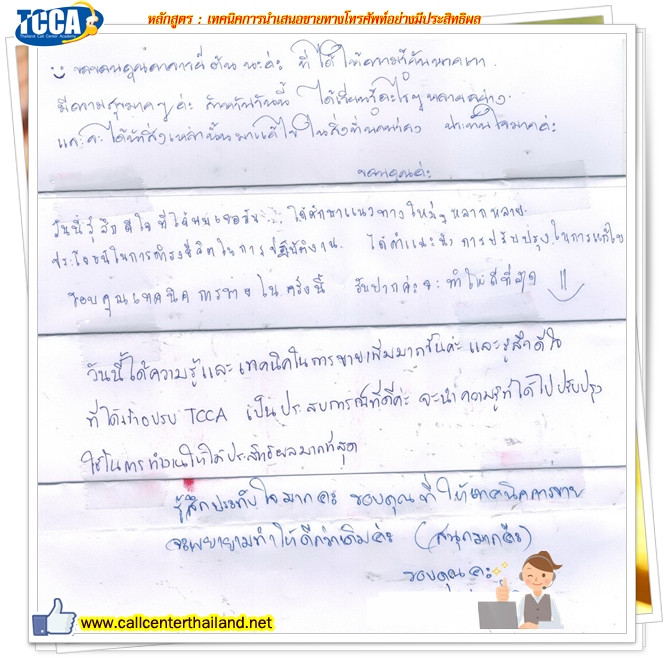 TCCA
Thailand Call Center Academy
หลักสูตร : เทคนิคการนำเสนอขายทางโทรศัพท์อย่างมีประสิทธิผล
ขอบคุณอาจารย์ นะค่ะ ที่ได้ให้
มีความสุขมากๆค่ะ สำหรับวันนี้ ได้เรียนรู้อะไรๆหลายอย่าง
และจะได้นำสิ่งเหล่านั้นมาแก้ไข ในสิ่งที่
ขอบคุณค่ะ
วันนี้รู้สึกดีใจที่ได้ ... ได้ศึกษาแนวทางใหม่ๆ หลากหลาย
ประโยชน์ในการดำรงชีวิตในการปฏิบัติงาน ได้คำแนะนำ การปรับปรุงในการแก้ไข
ขอบคุณเทคนิคการขายในครั้งนี้ รับปากค่ะจะทำให้ดีที่สุด
วันนี้ได้ความรู้และเทคนิคในการขายเพิ่มมากขึ้นค่ะ และรู้สึกดีใจ
ที่ได้เข้าอบรม TCCA เป็นประสบการณ์ที่ดีค่ะ จะนำความรู้ที่ได้ไปปรับปรุง
ใช้ในการทำงานให้ได้ประสิทธิผลมากที่สุด
รู้สึกประทับใจมากค่ะ ขอบคุณที่ให้เทคนิคการขาย
จะพยายามทำให้ดีกว่าเดิมค่ะ (สนุกมากค่ะ)
ขอบคุณค่ะ
www.callcenterthailand.net